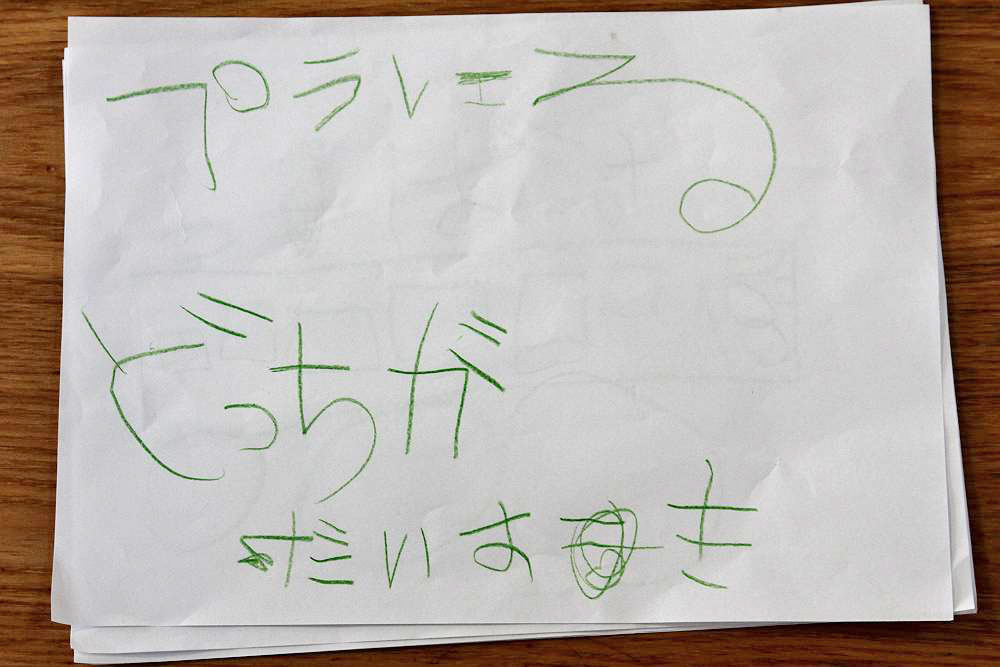 プラレエる
どっちが
だいすき